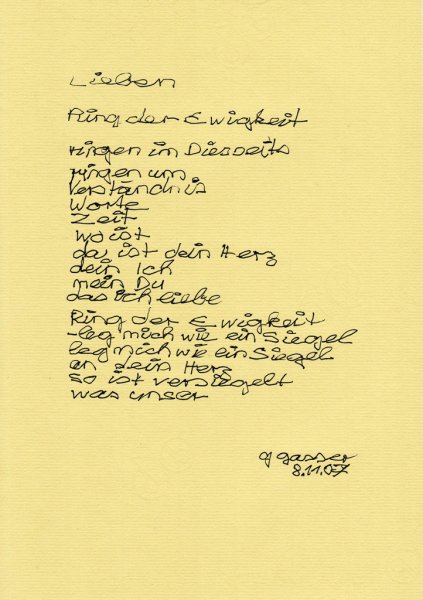 Lieben
Ring der Ewigkeit
ringen im Diesseits
ringen um
Verständnis
Worte
Zeit
wo ist
da ist dein Herz
dein Ich
mein Du
das ich liebe
Ring der Ewigkeit
-leg mich wie ein Siegel
leg mich wie ein Siegel
an dein Herz
so ist versiegelt
was unser
g gasser
8.11.07